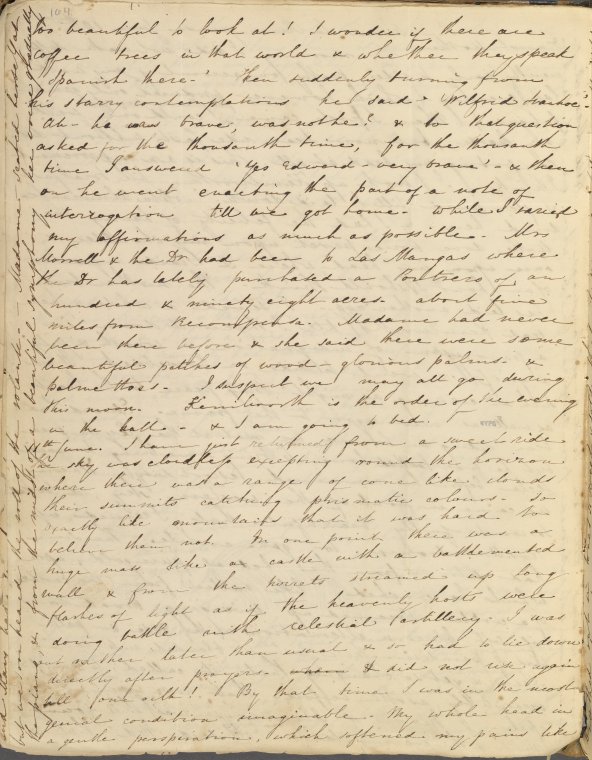 104
too beautiful to look at! I wonder if there are
coffee trees in that world & whether they speak
Spanish there-' Then suddenly turning from
his starry contemplations he said- 'Wilfrid Ivanhoe-
Ah- he was brave, was not he? & to that question
asked for the thousanth time, for the thousanth
time I answered 'Yes Edward- very brave'- & then
on he went enacting the part of a note of
interrogation till we got home- while I varied
my affirmations as much as possible- Mrs
Morrell & the Dr had been to Las Mangas where
the Dr has lately purchased a Pontrero of an
hundred & ninety eight acres- about five
miles from Recompensa. Madame had never
been there before & she said there were some
beautiful patches of wood- glorious palms- &
palmettoes- I suspect we may all go during
this moon. Kenilworth is the order of the evening
in the hall- & I am going to bed.
June. I have just returned from a sweet ride
the sky was cloudless excepting round the horizon
where there was a range of cone like clouds
their summits catching prismatic colours- so
exactly like mountains that it was hard to
believe them not. In one point there was a
huge mass like a castle with a battlemented
wall & from the turrets streamed up long
flashes of light as if the heavenly hosts were
doing battle with celestial artillery. I was
out rather later than usual & so had to lie down
directly after prayers- & did not rise again
till one oclk! By that time I was in the most
genial condition imaginable- My whole head in
a gentle perspiration, which softened my pains like